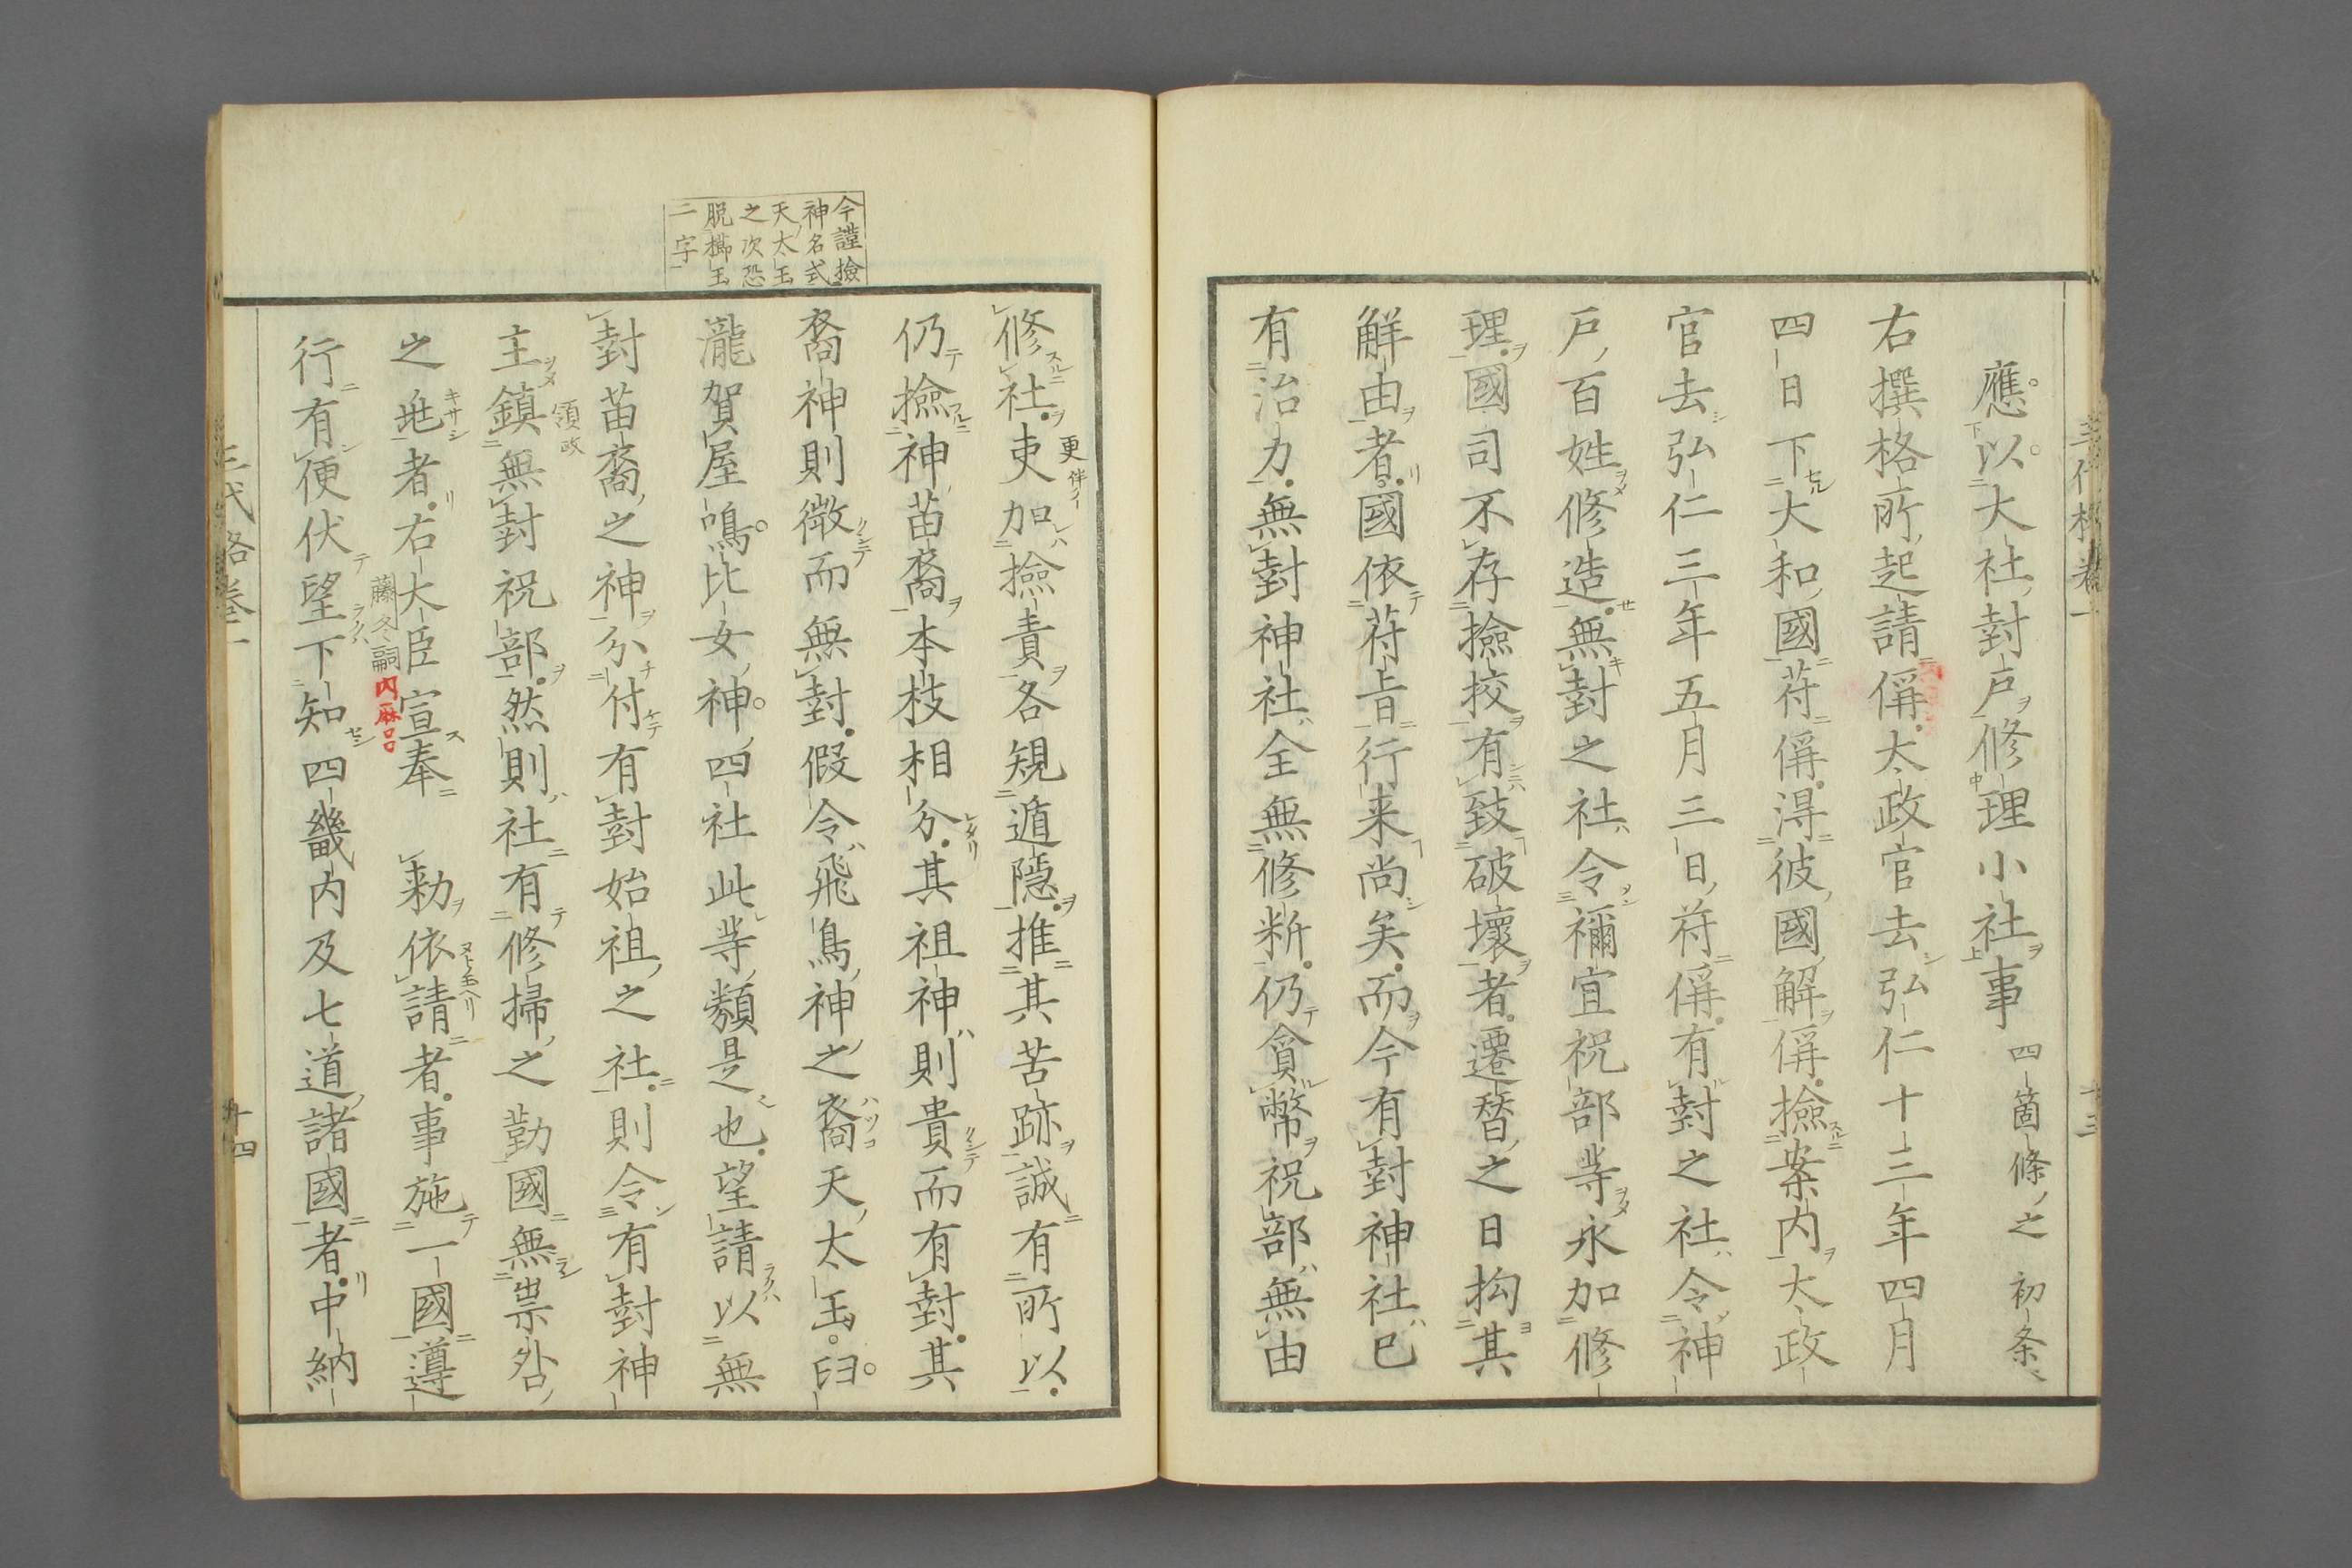 應以大社封戶修理小社事 四箇條之初条
右撰格所起請偁太政官去弘仁十三年四月
四日下大和國符偁得彼國解偁撿案内太政
官去弘仁三年五月三日符偁有封之社令神
戶百姓修造無封之社令禰宜祝部等永加修
理國司不存撿挍有致破壞者遷替之日拘其
解由者國依符旨行来尚矣而今有封神社已
有治力無封神社全無修料仍貪幣祝部無由
修社吏加撿責各規遁隱推其苦跡誠有所以
更
仍撿神苗裔本枝相分其祖神則貴而有封其
裔神則微而無封假令飛鳥神之裔天太玉臼
瀧賀屋鳴比女神四社此等類是也望請以無
封苗裔之神分付有封始祖之社則令有封神
主鎮無封祝部然則社有修掃之勤國無祟咎
領政
之兆者右大臣宣奉 勅依請者事施一國遵
藤冬嗣
内麻呂
行有便伏望下知四畿内及七道諸國者中納
今謹撿
神名式
天太玉
之次恐
脱櫛玉
二字
三代格卷一